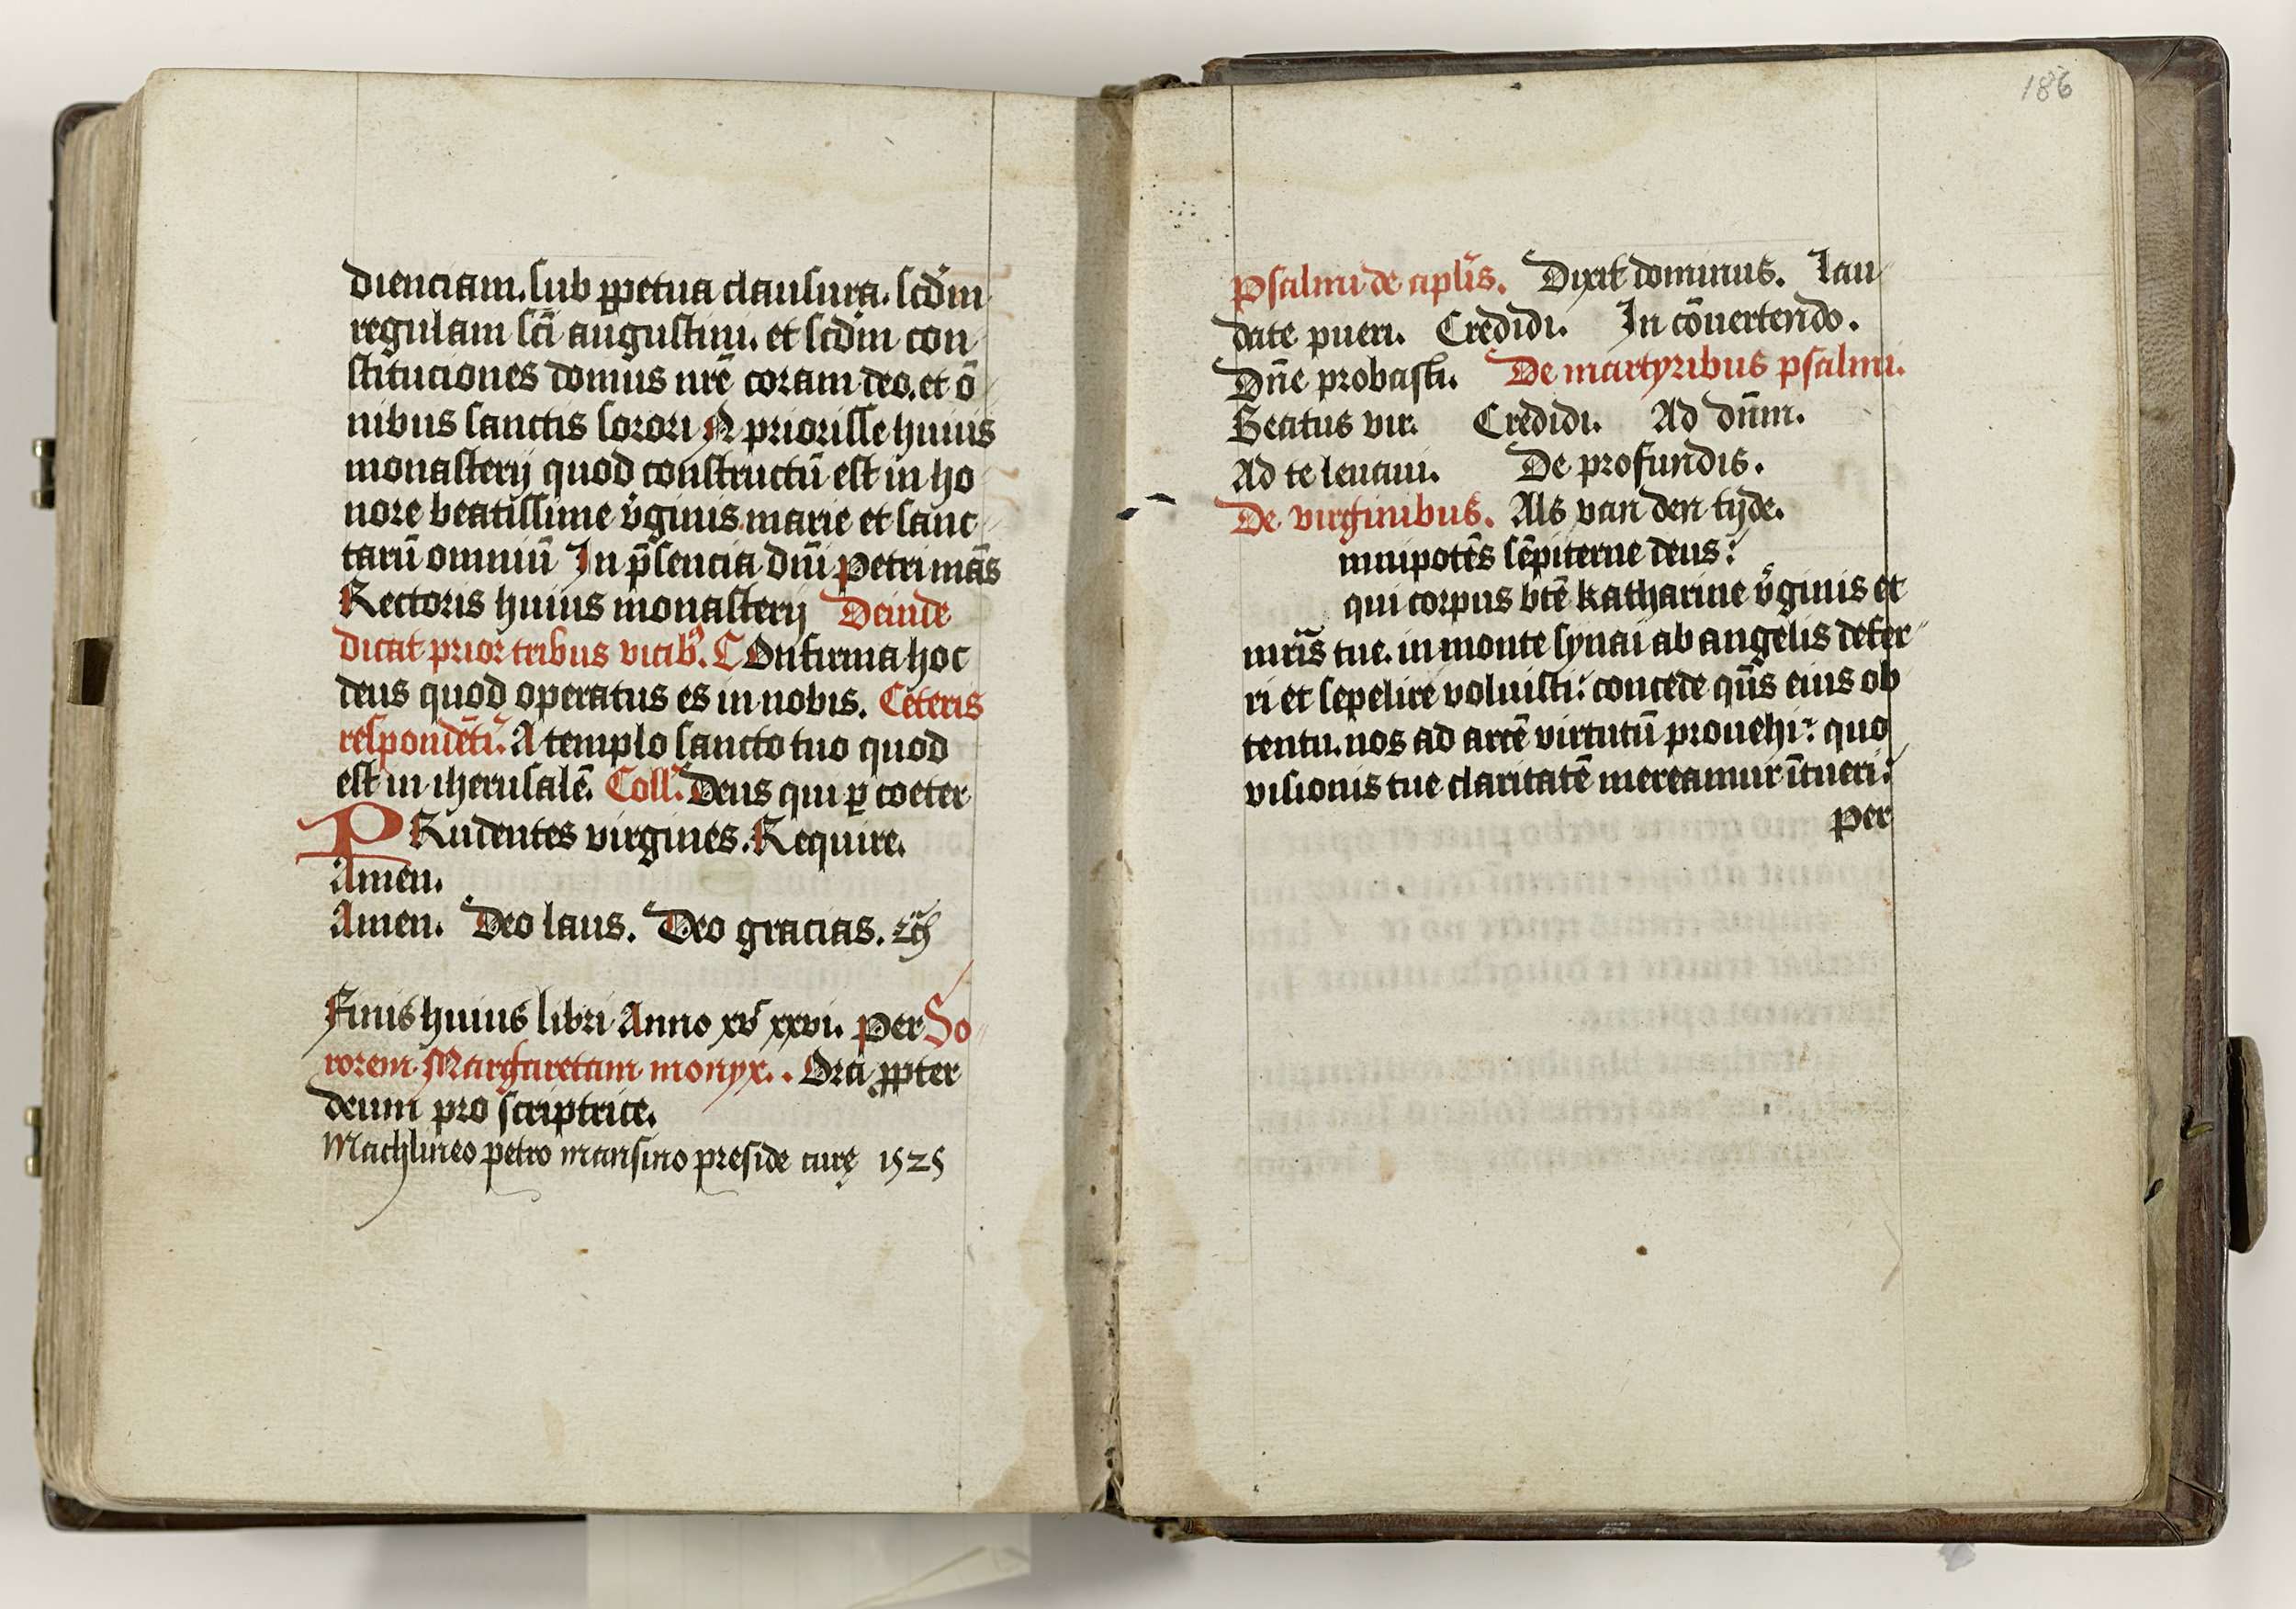 dienciam. sub ꝑpetua clausura. scdm̄
regulam sc̄i augustini. et scdm̄ con
stituciones domus nr̄e coram deo. et ō
nibus sanctis sorori N priorisse huius
monasterij quod constructū est in ho
nore beatissime v̄ginis marie et sanc
tarū omniū In p̄sencia dn̄i petri mās
Rectoris huius monasterij Deinde
dicat prior tribus vicibꝰ. COnfirma hoc
deus quod operatus es in nobis. Ceteris
respondētiꝰ. A templo sancto tuo quod
est in iherusalē. Coll. Deus qui ꝑ coeter
PRudentes virgines. Require.
Amen.
Amen. Deo laus. Deo gracias. etc̄
Finis huius libri Anno xvᶜ xxvi. per So
rorem Margaretam monyx. . Ora ꝓpter
deum pro scriptrice.
Machlineo petro mansino preside curę 1525
186
psalmi de apl̄is. Dixit dominus. Lau
date pueri. Credidi. In cōuertendo.
Dn̄e probasti. De martyribus psalmi.
Beatus vir. Credidi. Ad dn̄m.
Ad te leuaui. De profundis.
De virginibus. Als van den tyde.
mnipotēs sēpiterne deus:
qui corpus btē katharine v̄ginis et
mr̄is tue. in monte synai ab angelis defer
ri et sepelire voluisti: concede qs̄ eius ob
tentu. nos ad arcē virtutū prouehi: quo
visionis tue claritatē mereamur ītueri:
per